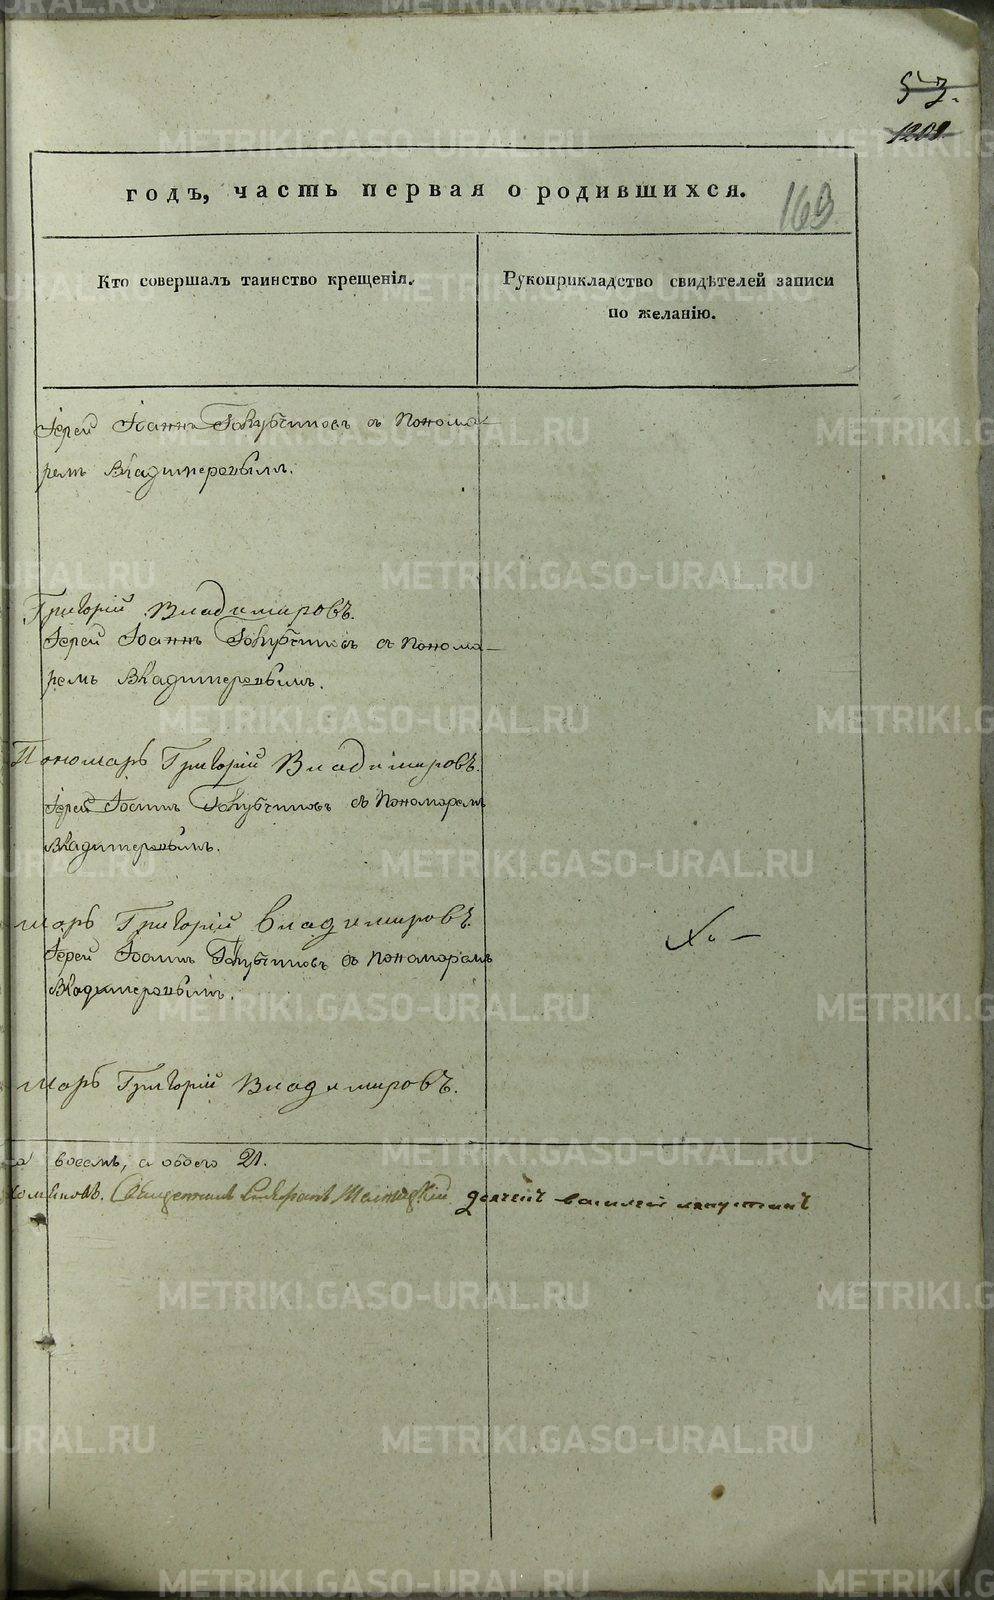 53.
1209
163
годъ, часть первая о родившихся.
Кто совершалъ таинство крещенія.
Рукоприкладство свидѣтелей записи
по желанію.
Іерей Іоаннъ Голубчиковъ съ Понома-
ремъ Владимеровымъ.
Григорій Владимировъ.
Іерей Іоаннъ Голубчиковъ съ Понома-
ремъ Владимеровымъ.
Пономарь Григорій Владиміровъ.
Іерей Іоаннъ Голубчиковъ съ Пономаремъ
Владимеровымъ.
марь Григорій Владимировъ.
Іерей Іоаннъ Голубчиковъ съ Пономаремъ
Владимеровымъ.
марь Григорій Владимировъ.
восемь, а обоего 21.
Священникъ дьячекъ василей
METRIKI.GASO-URAL.RU